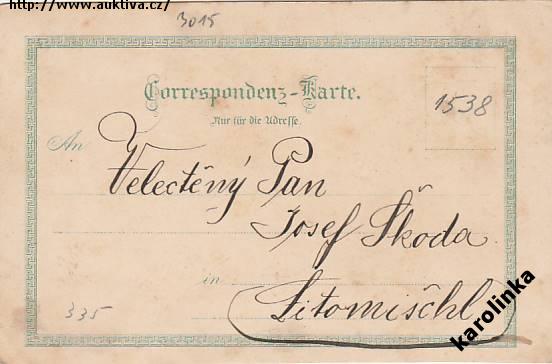 http://www.auktiva.cz/
3015
Correspondenz-Karte.
Nur für die Adresse.
1538
An
Velectěný Pan
Josef Škoda
in
Litomischl
335
karolinka